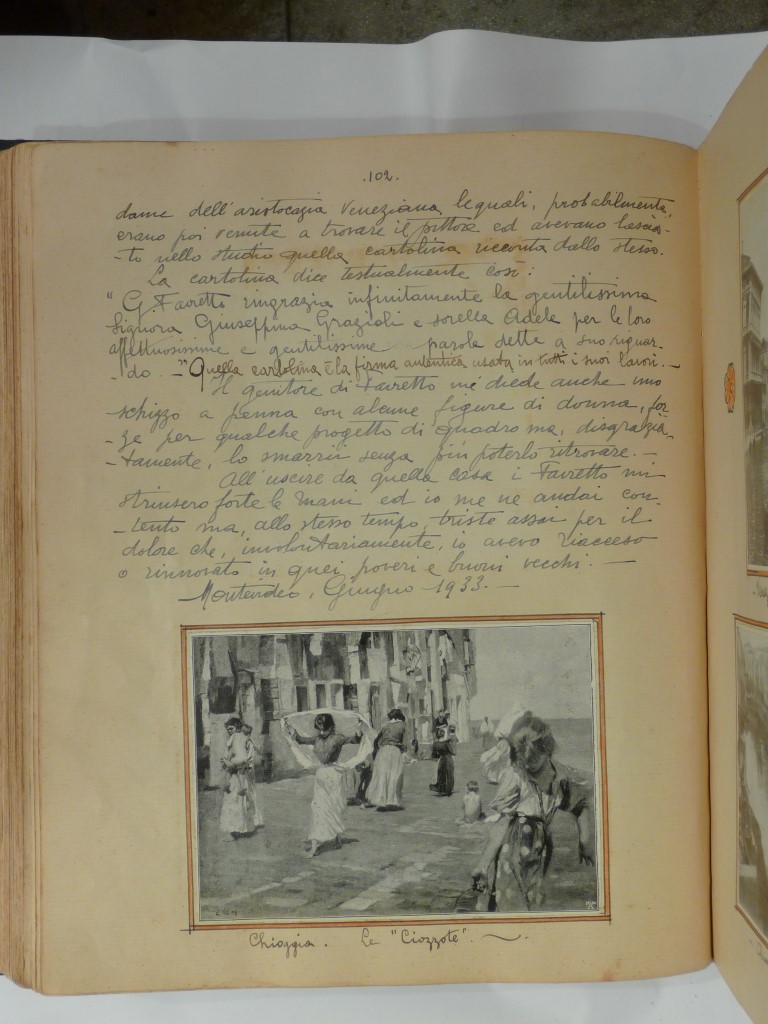 .102.
dame dell'aristocrazia Veneziana le quali, probabilmente,
erano poi venute a trovare il pittore ed avevano lascia-
-to nello studio quella cartolina riccorta dallo stesso.
La cartolina dice testualmente così:
"G. Favretto ringrazia infinitamente la gentilissima
Signora Giuseppina Grazioli e sorella Adele per le loro
affettuosissime e gentilissime parole dette a suo riguar-
-do. -" Quella cartolina è la firma autentica usata in tutti i suoi lavori. -
Il genitore di Favretto mi diede anche uno
schizzo a penna con alcune figure di donna, for
-ze per qualche progetto di quadro ma, disgrazia-
-tamente, lo smarrii senza più poterlo ritrovare. -
All'uscire da quella casa i Favretto mi
strinsero forte le mani ed io me ne andai con-
-tento ma, allo stesso tempo, triste assai per il
dolore che, involontariamente, io avevo riacceso
o rinnovato in quei poveri e buoni vecchi. -
Montevideo, Giugno 1933. -
Chioggia. Le "Ciozzote".